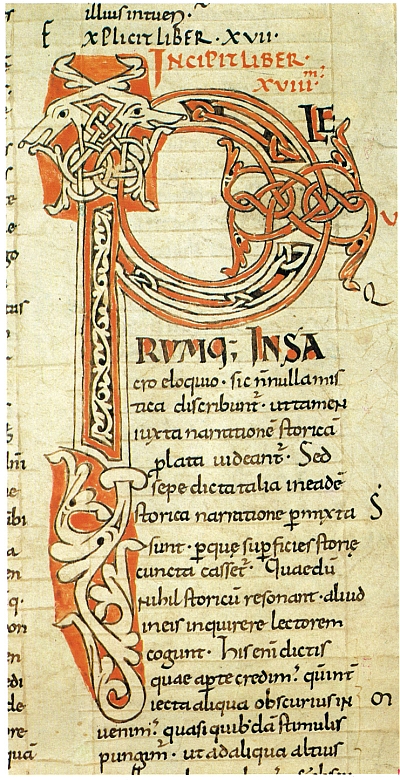 illius intuen̄.
EXPLICIT LIBER · XVII ·
INCIPIT LIBER ·
XVIII · m̄
PLE
RUMQ; IN SA
cro eloquio · sic n̄nulla mis
tica discribunt̄ · ut tamen
iuxta narrationē storicā
plata uideant̄ · Sed
sepe dicta talia in eadē
storica narratione pmixta
sunt · pquę supficies storię
cuncta casset̄ · Quaedā
Nihil storicū resonant · aliud
in eis inquirere lectorem
cogunt · His enī dictis
quae apte credim᾽ · qūint
iecta aliqua obscurius in
uenim᾽ · quasi quib᾽dā stimulis
pungim᾽ · ut ad aliqua altius